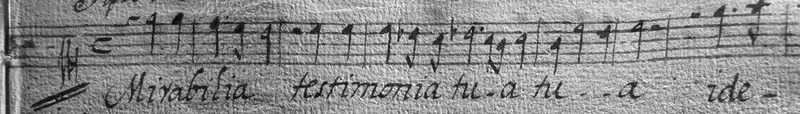 Mirabilia testimonia tu-a tu--a ide-